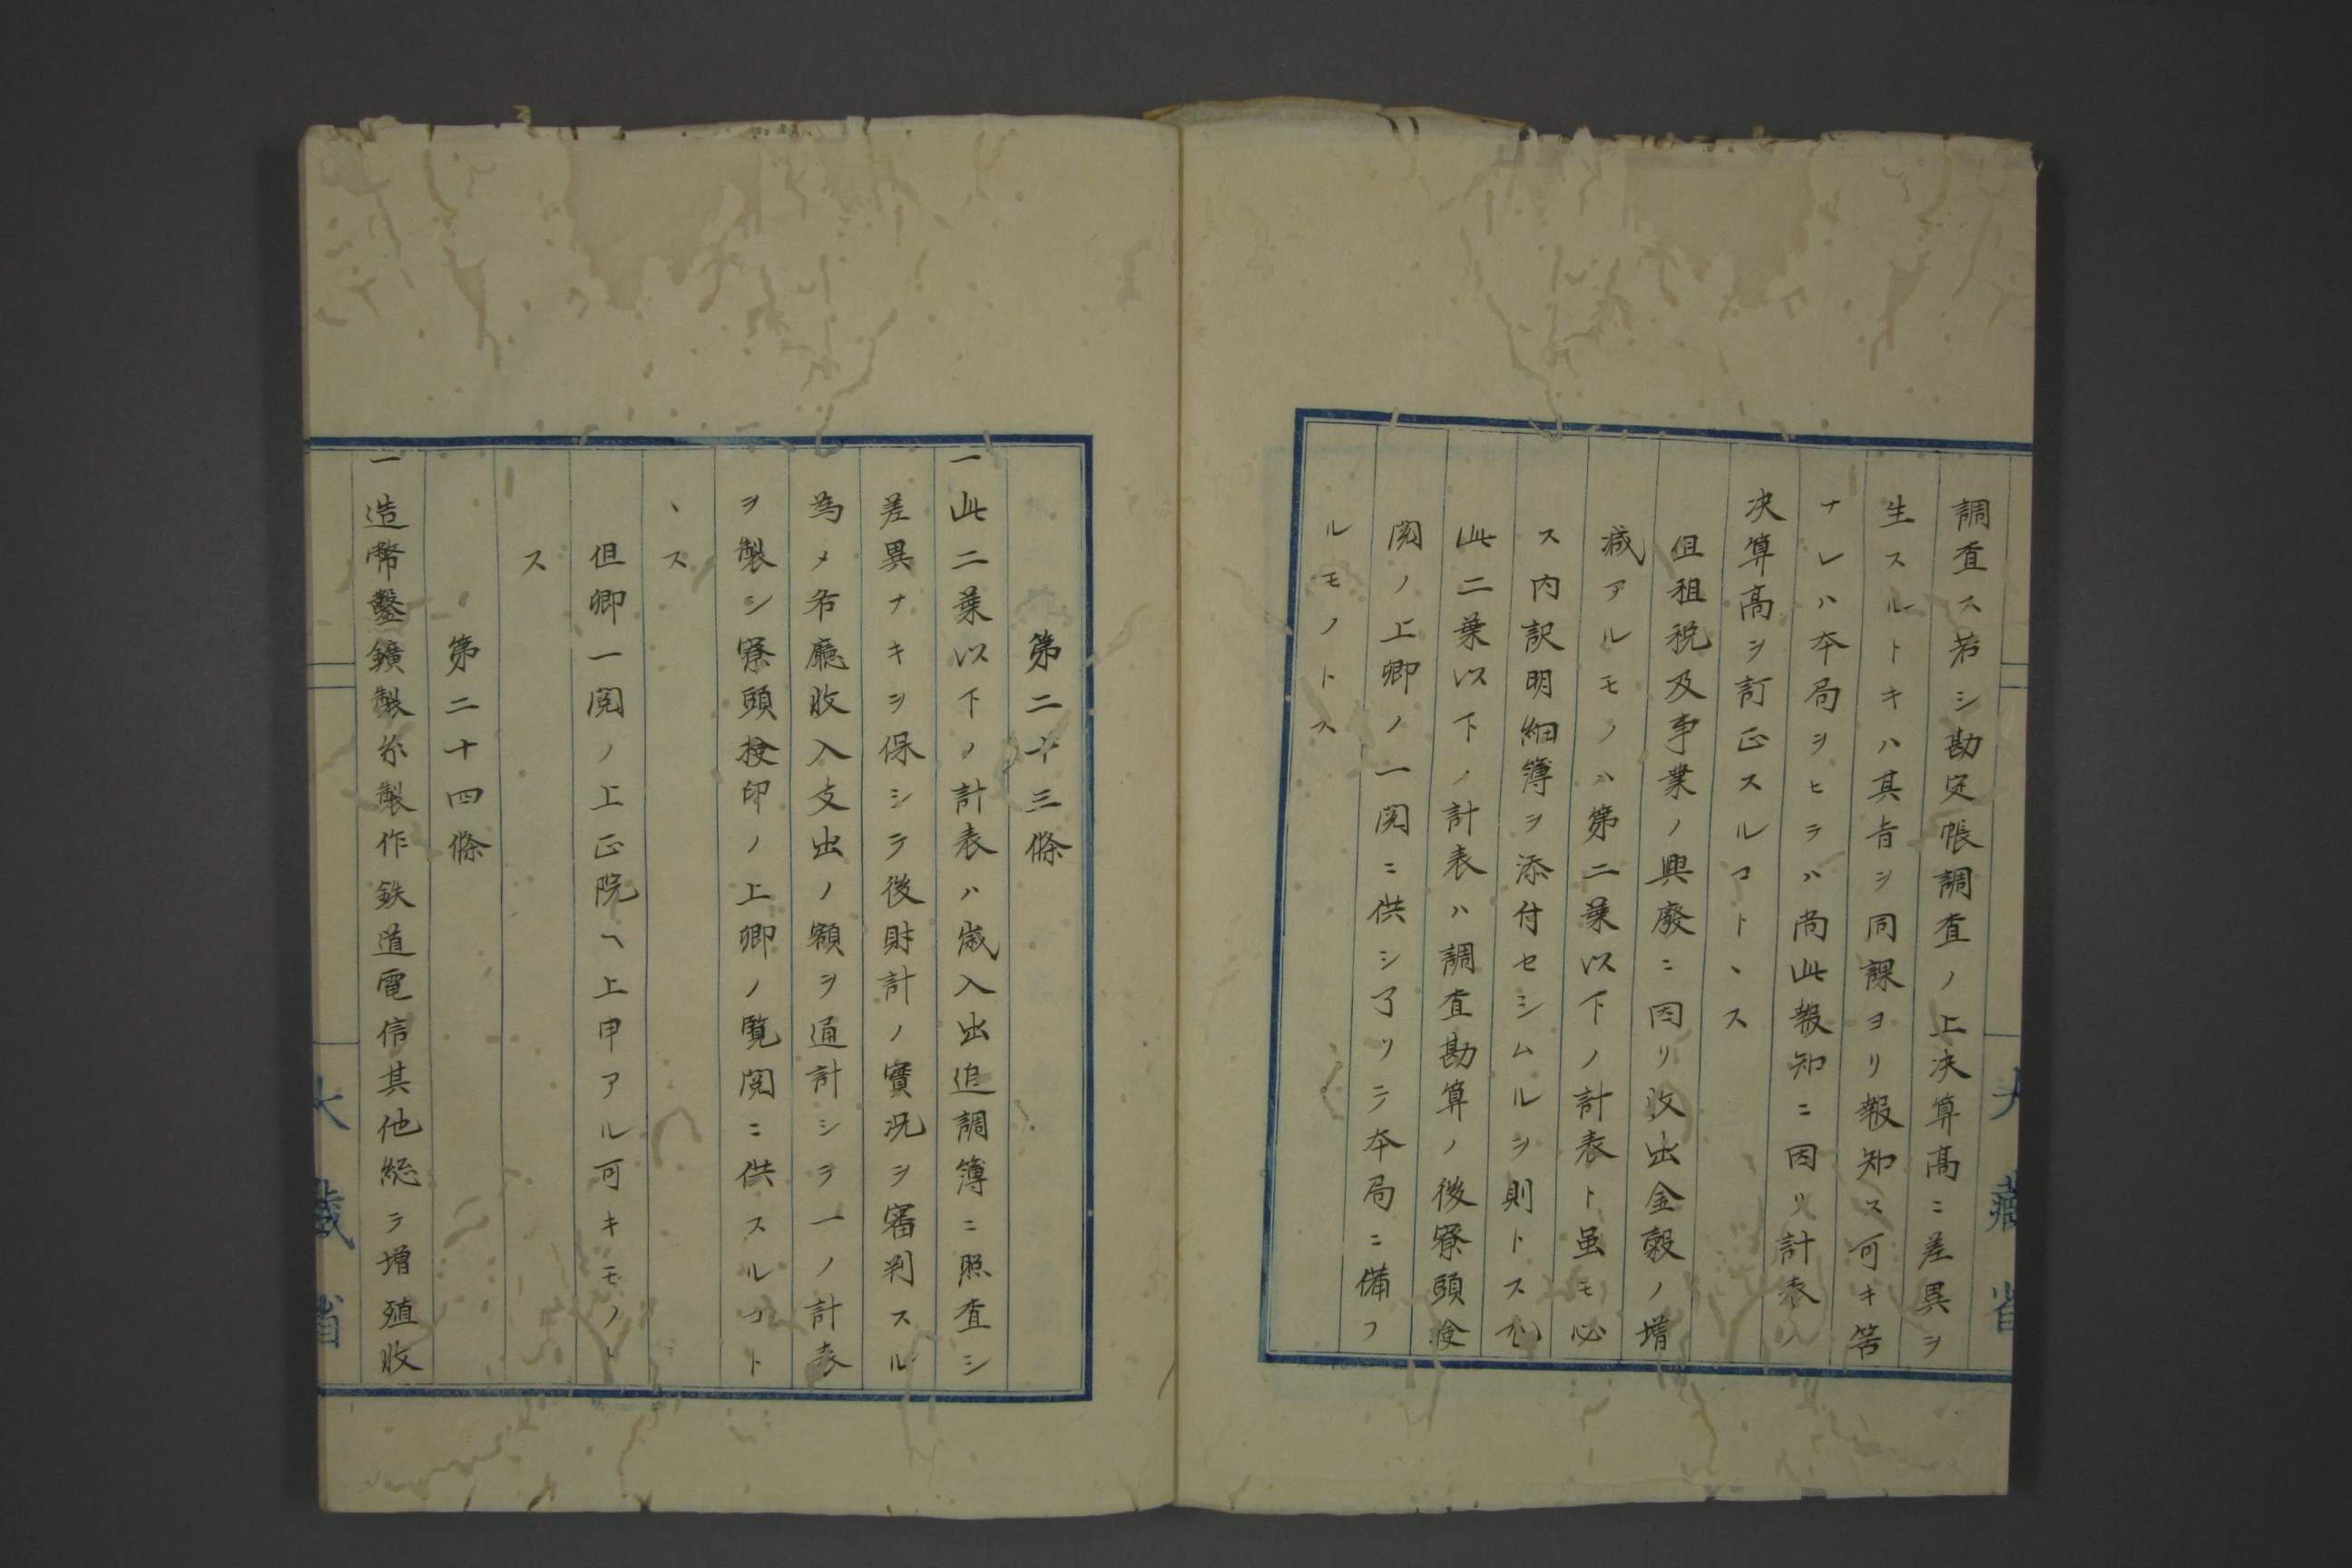 調査ス若シ勘定帳調査ノ上决算髙ニ差異ヲ
生スルトキハ其旨ヲ同課ヨリ報知ス可キ筈
ナレハ本局ヲヒテハ尚此報知ニ因リ計表ノ
决算髙ヲ訂正スルコトヽス
但租税及事業ノ興廢ニ因リ收出金穀ノ増
减アルモノハ第二葉以下ノ計表ト虽モ必
ス内訳明細簿ヲ添付セシムルヲ則トス
此二葉以下ノ計表ハ調査勘算ノ後寮頭
閲ノ上卿ノ一閲ニ供シ了リテ本局ニ備フ
ルモノトス
大藏省
第二十三條
一此二葉以下ノ計表ハ歳入出追調簿ニ照査シ
差異ナキヲ保シテ後財計ノ實况ヲ審判スル
為メ各廳收入支出ノ額ヲ通計シテ一ノ計表
ヲ製シ寮頭検印ノ上卿ノ覧閲ニ供スルコト
ヽス
但卿一閲ノ上正院ヘ上申アル可キモノト
ス
第二十四條
一造幣鑿鑛製糸製作鉄道電信其他総テ増殖收
大藏省